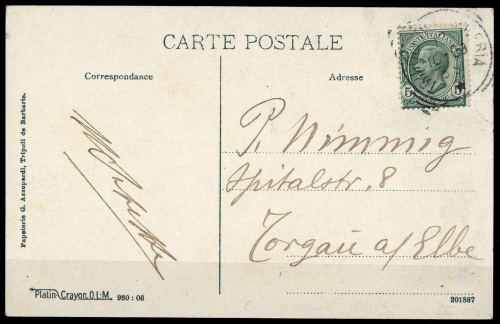 CARTE POSTALE
Correspondance
Adresse
POSTE ITALIANE
5
5
P. Nimmig
Spitalstr. 8
Torgau a/Elbe
Papeterie G. Azzopardi, Tripoli de Barbarie.
Platin Crayon. O.L.M. 980 : 06
201887